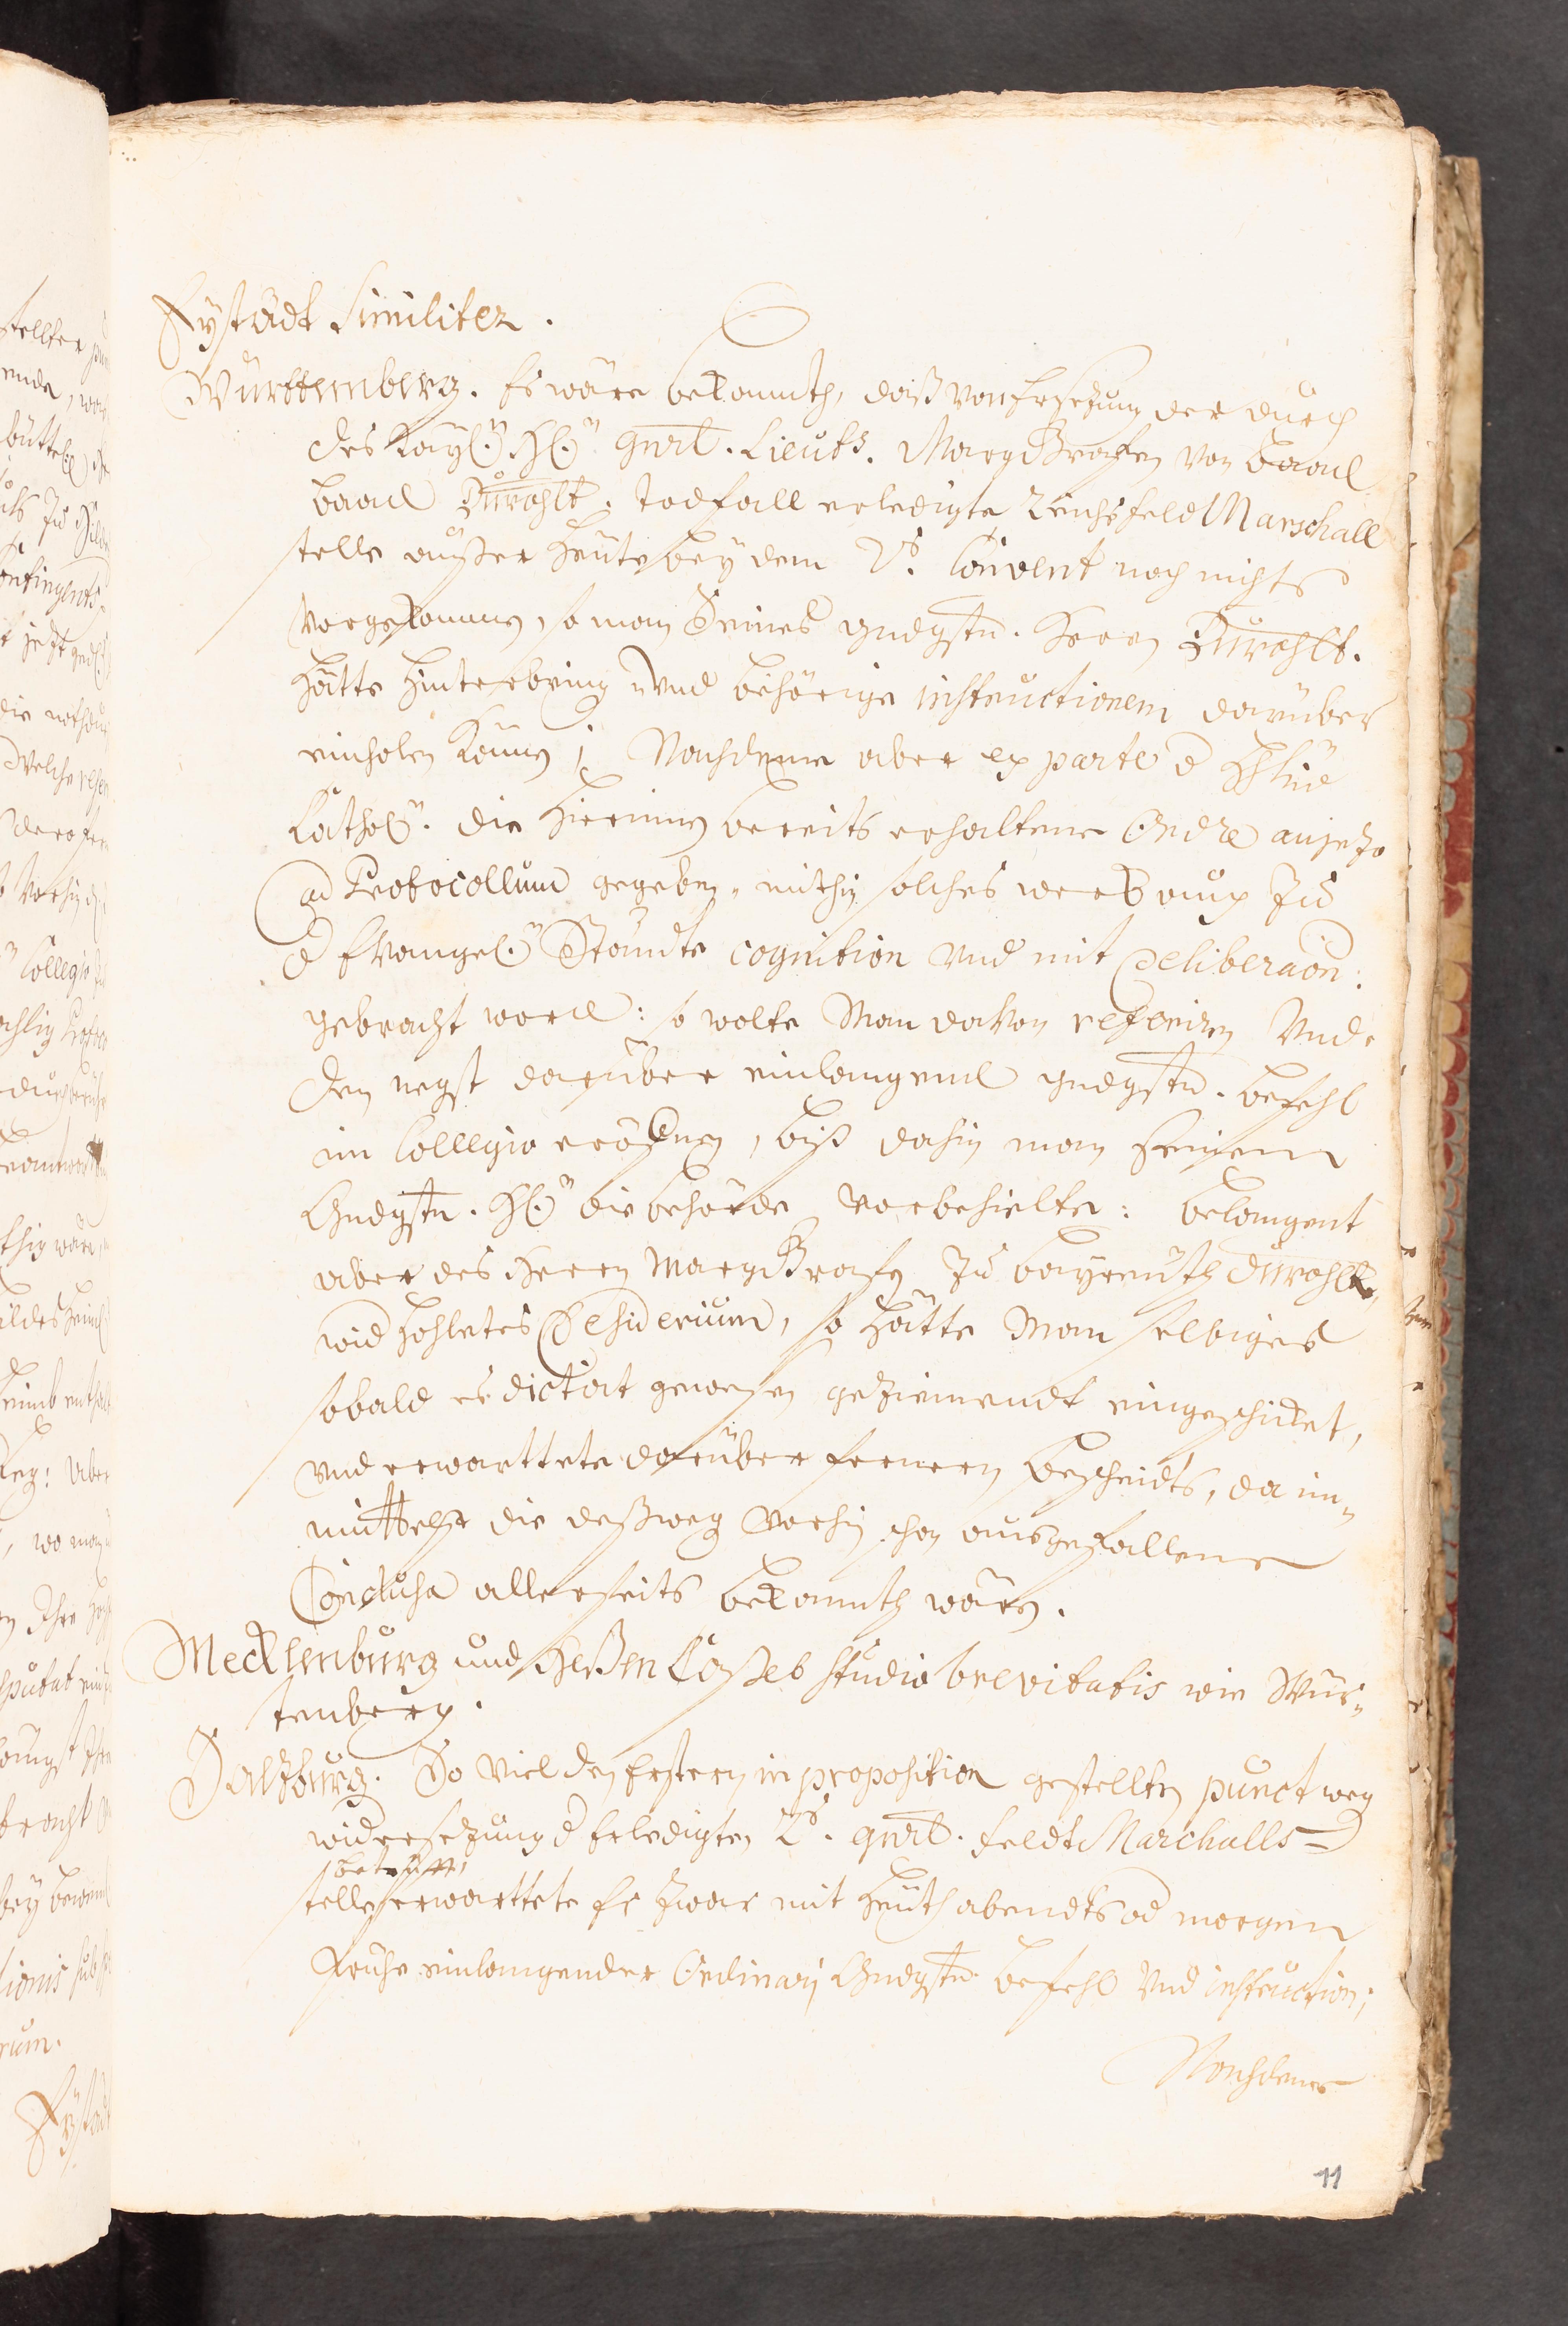 Eystädt Similiter.
Württemberg. Es wäre bekannth, daß von Ersetzung der durch
des Kayl. H. gnrl. Lieuts. MargGrafen von Baad
Baad Durchlt. todfall erledigte Reichsfeld Marschall
stelle außer heute bey dem Convent noch nichts
vorgekommen, so man Seines gndgstn. Herrn Durchlt.
hätte hinterbring und behörige instructionem darüber
einholen können; Nachdeme aber ex parte d
Cathol. die hierinnen bereits erhaltene Ordre anjetzo
ad Protocollum gegeben, mithin solches werk auch zu
d Evangel. Stände cognition und mit deliberaōn:
gebracht word: so wolte Man davon referiren Und
den negst darüber einlangend gndgstn. befehl
im Collegio eröffnen, biß dahin man Seinem
Gndgstn. H. die behörde vorbehielte: belangent
aber des Herrn MargGrafen zu Bayreuth Durchlt.
widhohltes Desiderium, so hätte Man selbiges
sobald es dictat gewesen geziemendt eingeschickt,
und erwarttete darüber fernern bescheidts, da im-
mittelst die deßweg vorhin schon ausgefallene
Conclusa allerseits bekannth wären.
Mecklenburg und Heßen Caßel studio brevitatis wie Wür-
tenberg.
Saltzburg. So viel den Erstern in proposition gestellten punct weg
widersetzung d Erledigten Rs. gnrl. feldt Marchalls-
stelle erwarttete Er zwar mit heuth abendts od morgen
Fruhe einlangender Ordinarj Gndgstn. befehl und instruction;
Nachdeme
11